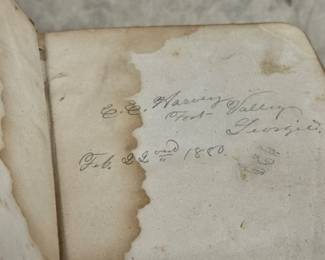 C. C. Harvey
Fort Valley
Georgia.
Feb. 22nd 1880.